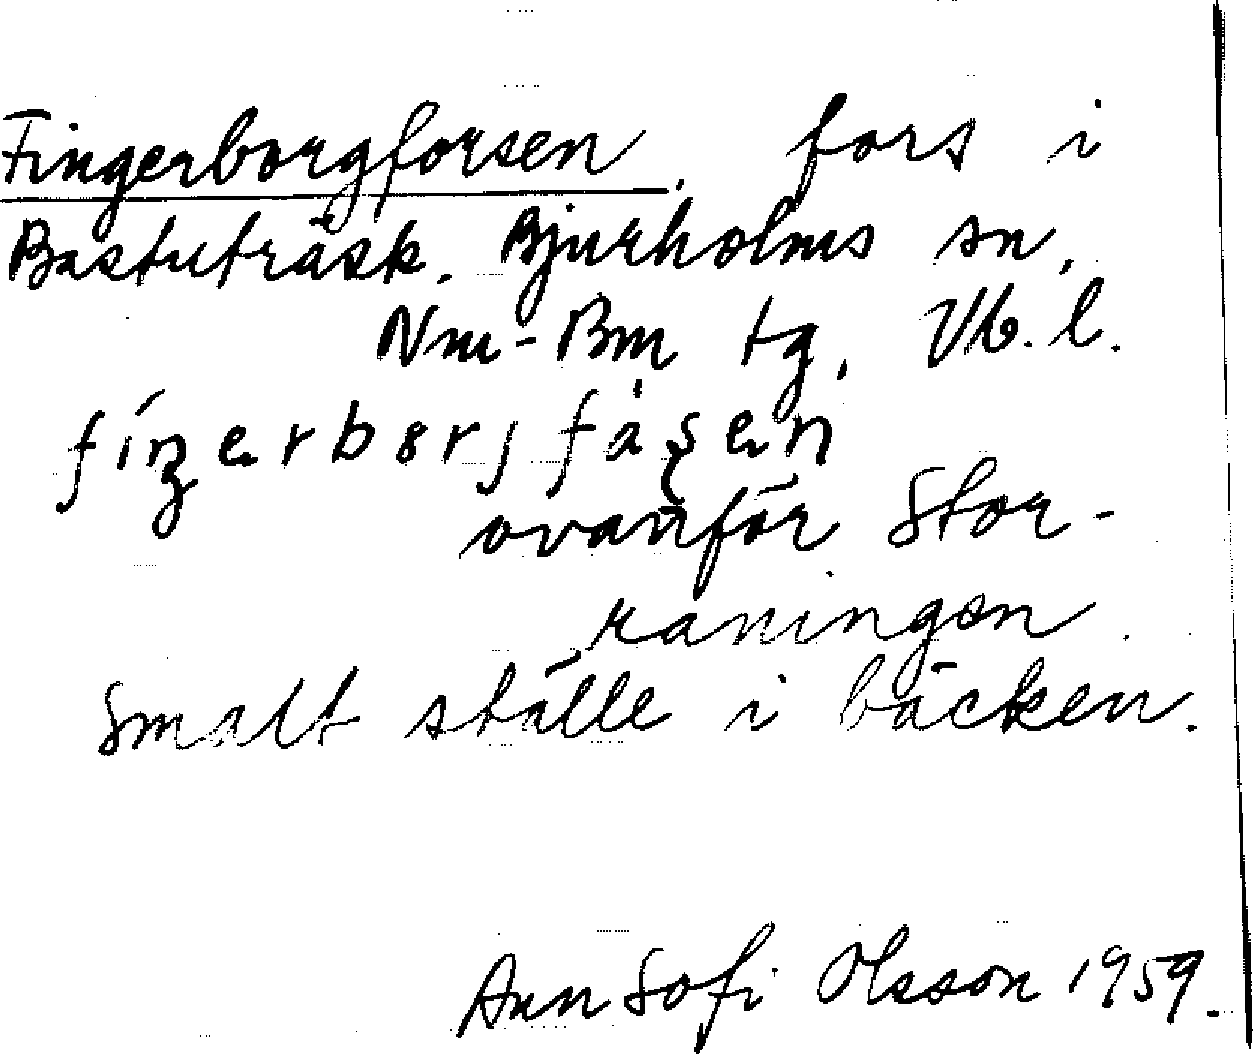 Fingerborgforsen, fors i
Bastuträsk. Bjurholms sn,
Nm-Bm tg, Vb. l.
fíŋerbɵrj fàşen
ovanför Stor-
raningen.
Smalt ställe i bäcken.
Ann Sofi Olsson 1959.